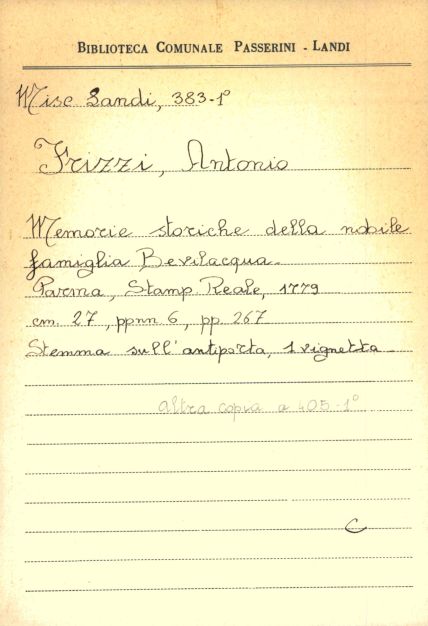 BIBLIOTECA COMUNALE PASSERINI - LANDI
Misc Landi, 383-1°
Frizzi, Antonio
Memorie storiche della nobile
famiglia Bevilacqua.
Parma, Stamp. Reale, 1779
cm. 27, ppnn 6, pp. 267
Stemma sull'antiporta, 1 vignetta
altra copia a 405-1°
C